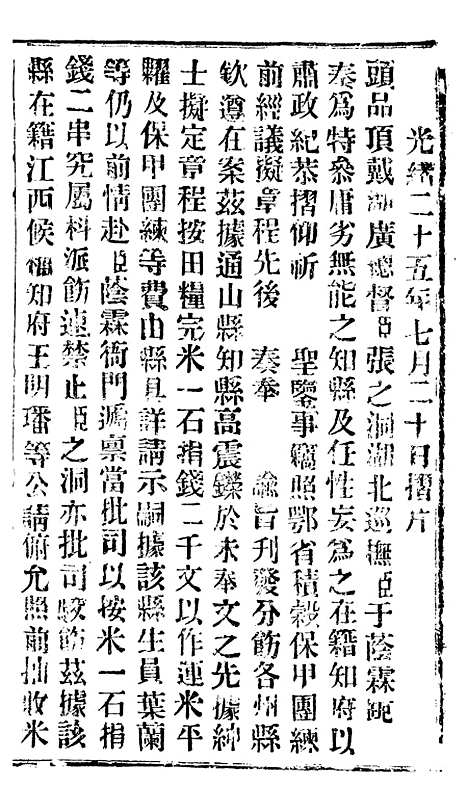 光緒二十五年七月二十日摺片
頭品頂戴湖廣總督臣張之洞湖北巡撫臣于蔭霖跪
奏為特叅庸劣無能之知縣及任性妄為之在籍知府以
肅政紀恭摺仰祈 聖鑒事竊照鄂省積穀保甲團練
前經議擬章程先後 奏奉 諭旨刋發分飭各州縣
欽遵在案茲據通山縣知縣高震鑠於未奉文之先據紳
士擬定章程按田糧完米一石捐錢二千文以作運米平
糶及保甲團練等費由縣具詳請示嗣據該縣生員葉蘭
等仍以前情赴臣蔭霖衙門瀆禀當批司以按米一石捐
錢二串究屬科派飭速禁止臣之洞亦批司嚴飭茲據該
縣在籍江西候補知府王明璠等公請俯允照前抽收米